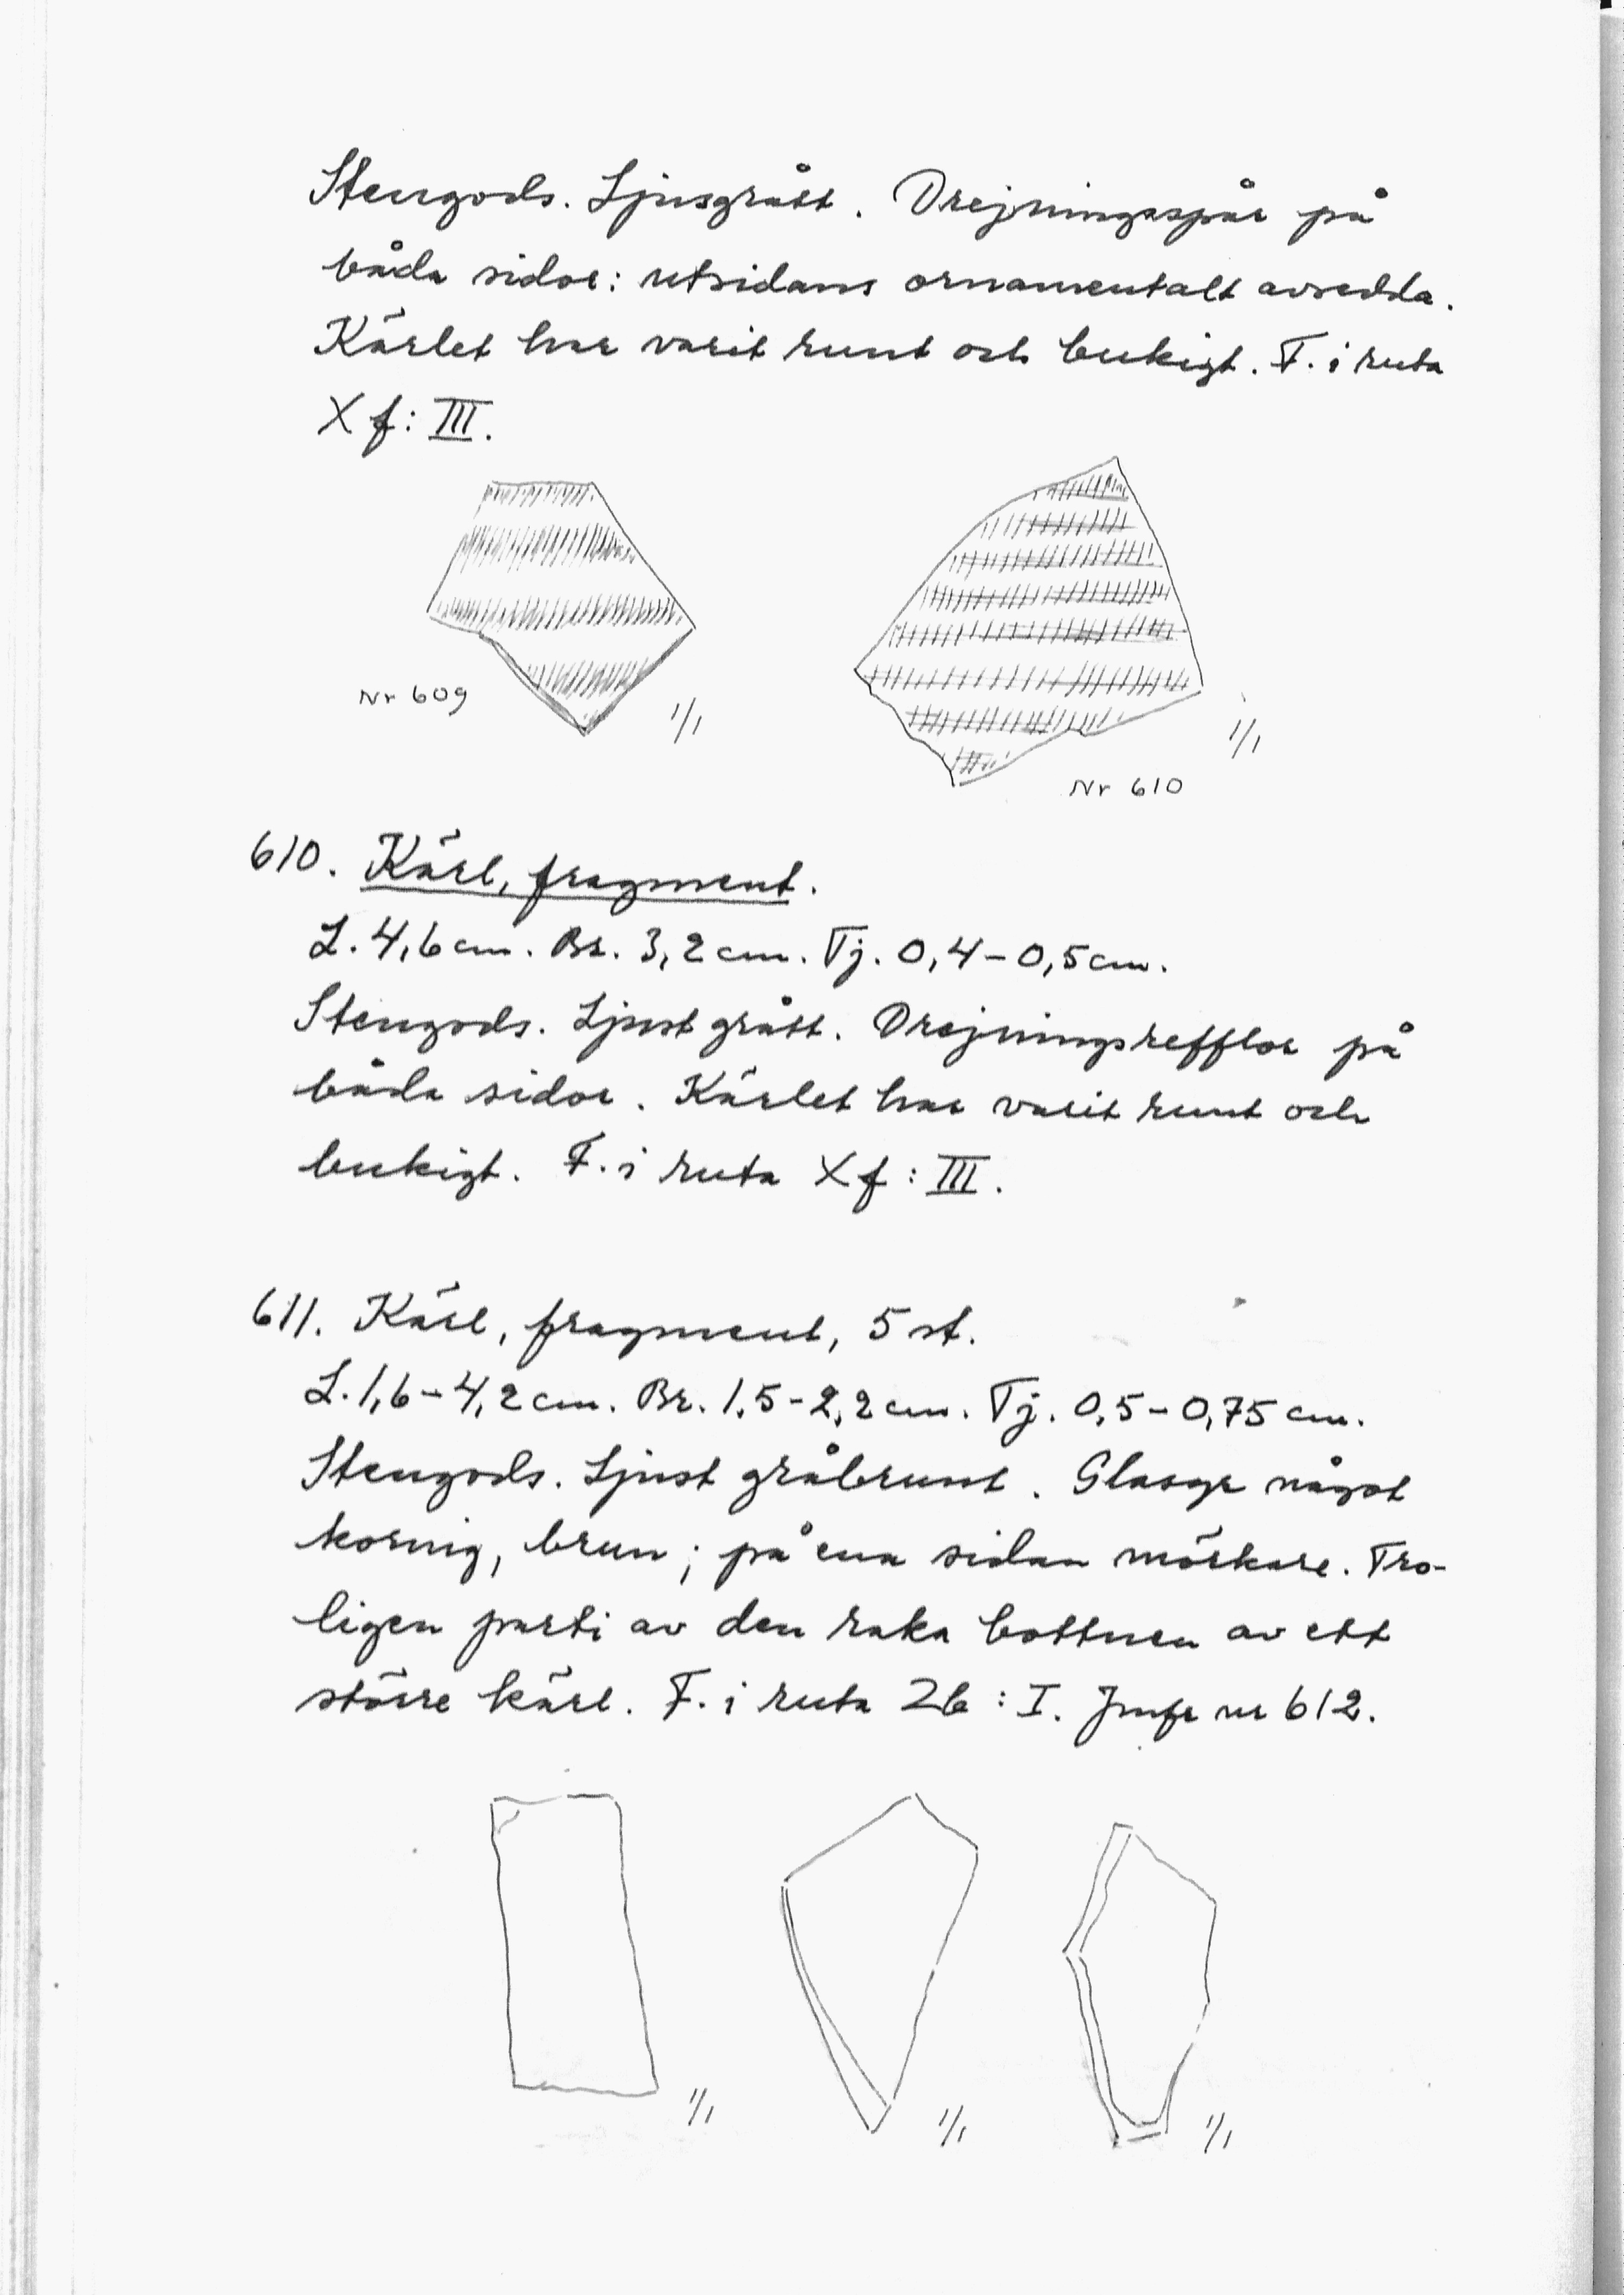 Stengods. Ljusgrått. Drejningsspår på
båda sidor: utsidans ornamentalt avsedda.
Kärlet har varit runt och bukigt. F. i ruta
Xf: III.
Nr 609
1/1
1/1
Nr 610
610. Kärl, fragment.
L. 4,6 cm. Br. 3,2 cm. Tj. 0,4-0,5 cm.
Stengods. Ljust grått. Drejningsrefflor på
båda sidor. Kärlet har varit runt och
bukigt. F. i ruta Xf: III.
611. Kärl, fragment, 5 st.
L. 1,6-4,2 cm. Br. 1,5-2,2 cm. Tj. 0,5-0,75 cm.
Stengods. Ljust gråbrunt. Glasyr något
kornig, brun; på ena sidan mörkare. Tro-
ligen parti av den raka bottnen av ett
större kärl. F. i ruta Zb: I. Jmfr nr 612.
1/1
1/1
1/1